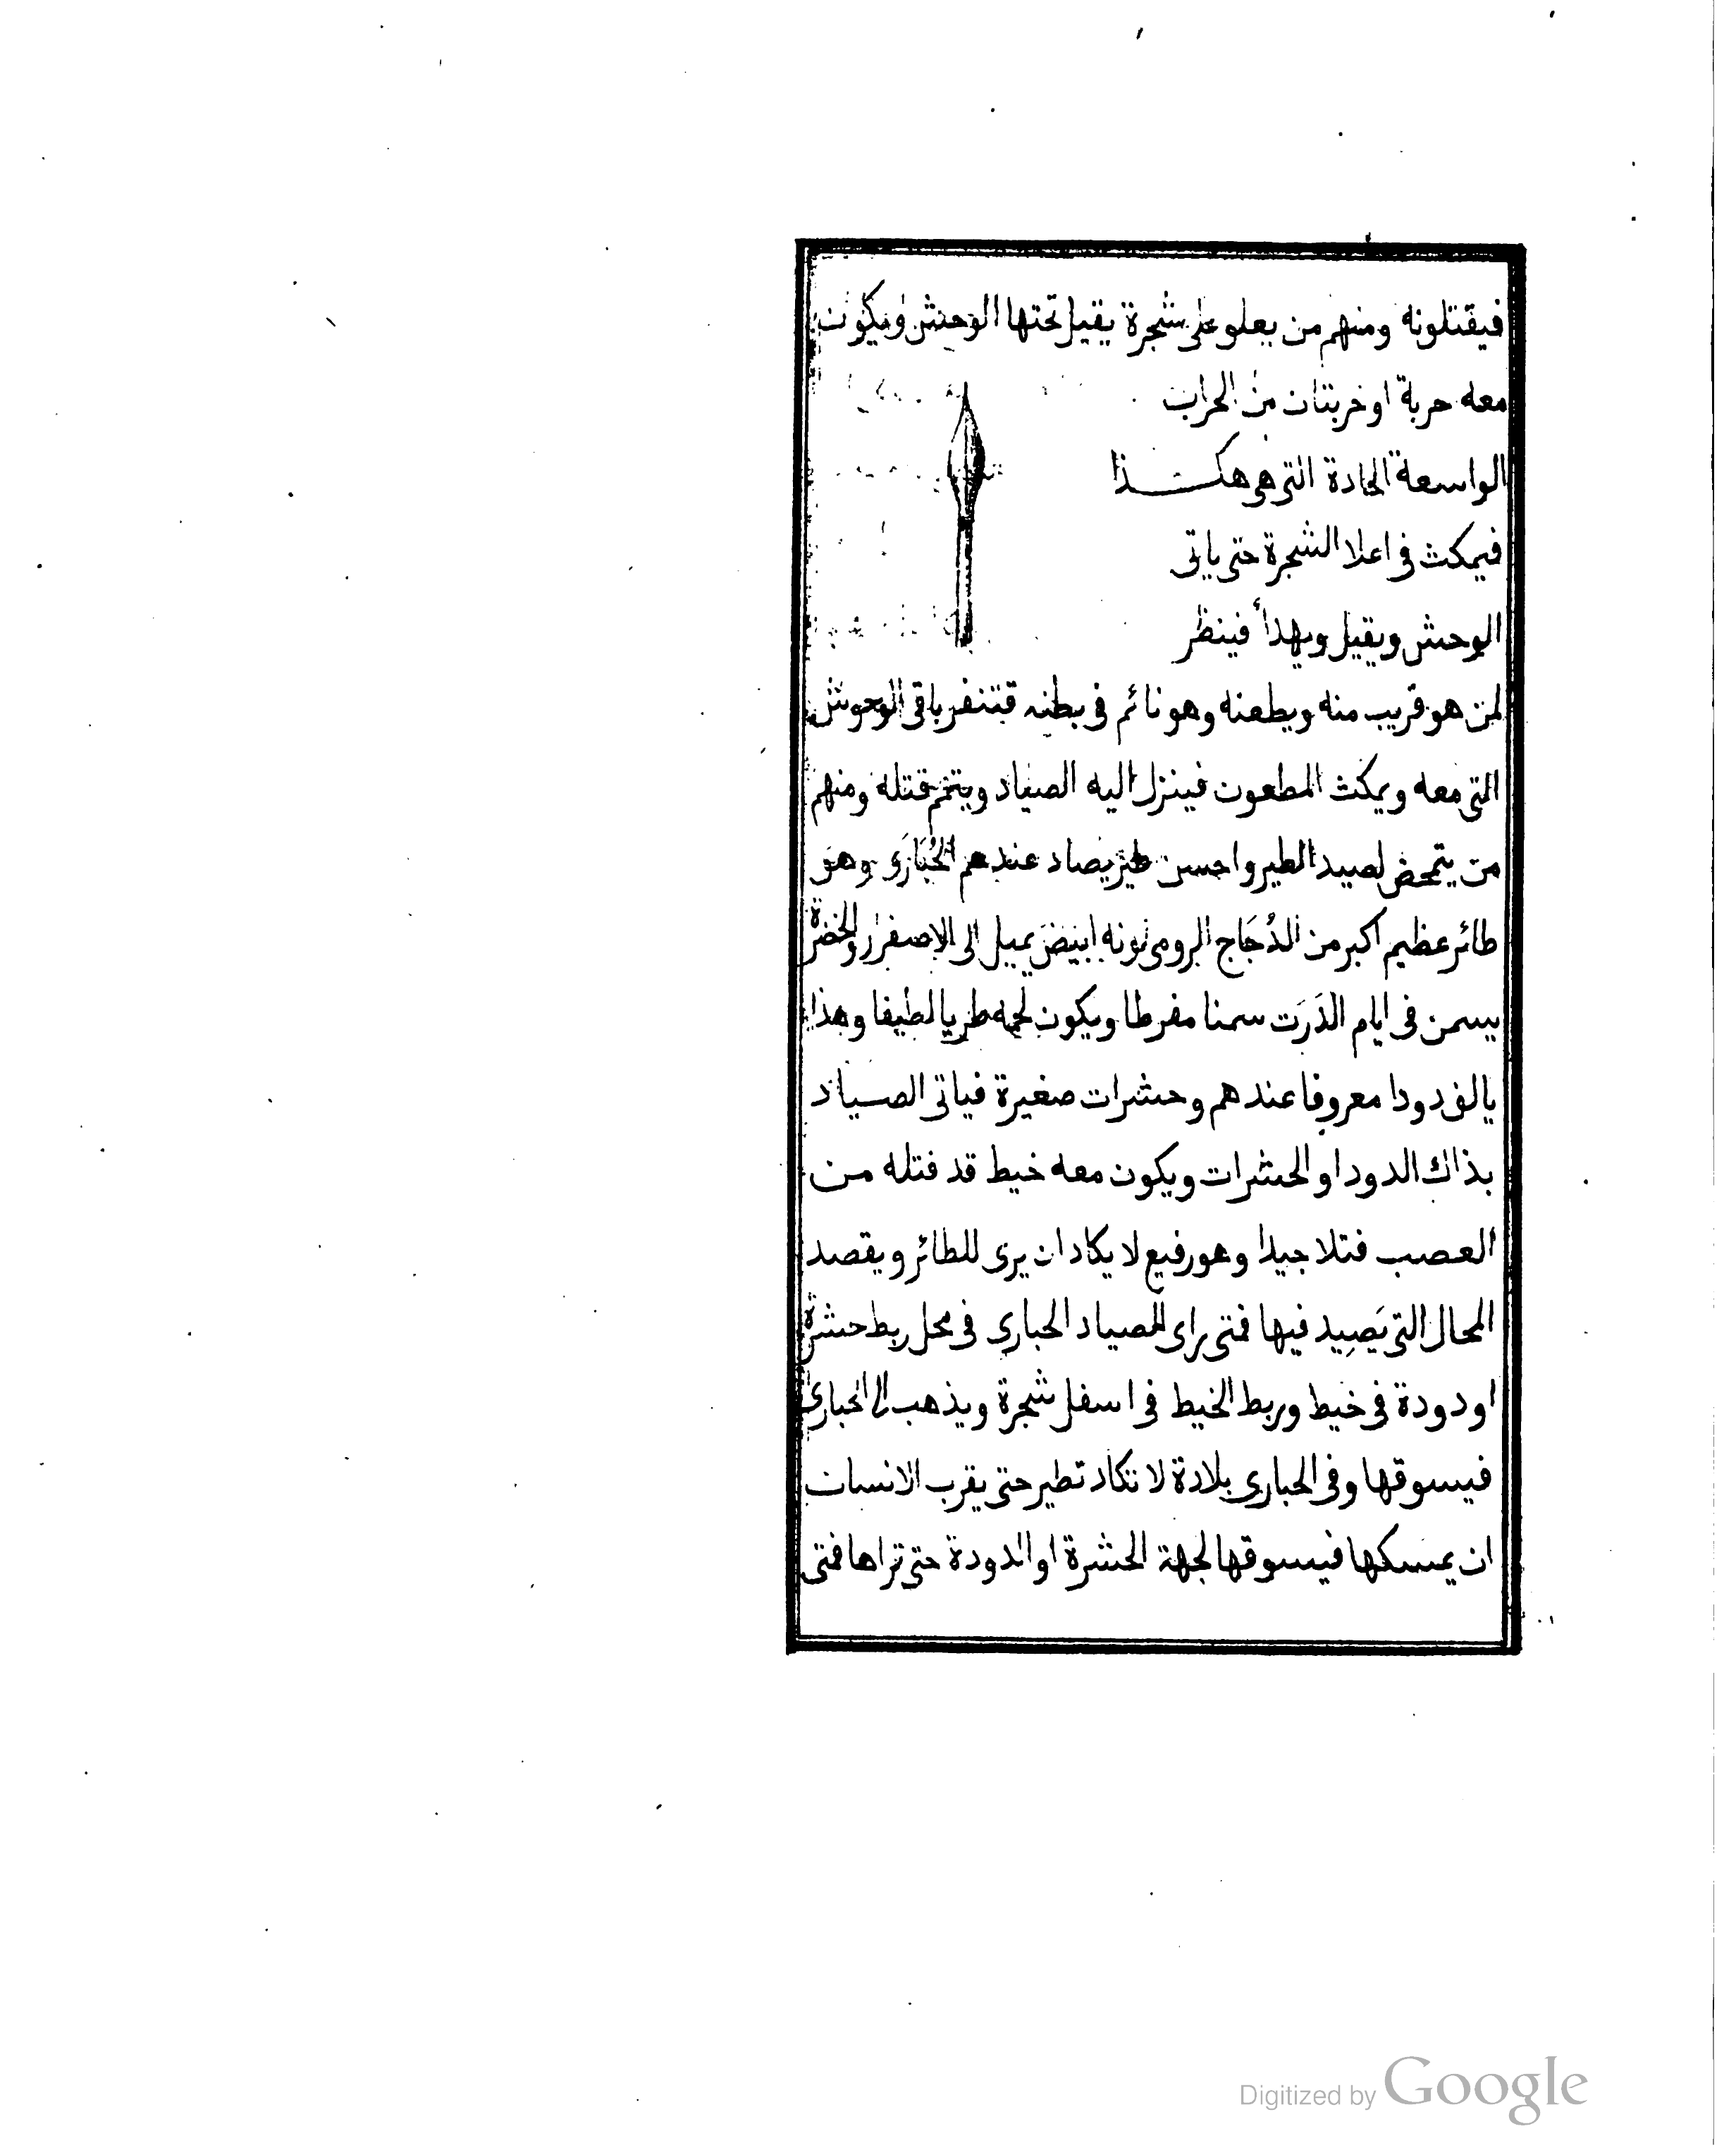 فيقتلونه ومنهم من يعلو على شجرة يقيل تحتها الوحش ويكون
معه حربة او حربتان من الحراب
الواسعة الحادة التى هى هكـــذا
فيمكث فى اعلا الشجرة حتى ياتى
الوحش ويقيل ويهدأ فينظر
لمن هو قريب منه ويطعنه وهو نائم فى بطنه فتنفر باقى الوحوش
التى معه ويمكث المطعون فينزل اليه الصياد ويتمم قتله ومنهم
من يتمحض لصيد الطير واحسن طير يصاد عندهم الحُبَارَى وهو
طائر عظيم اكبر من الدُجَاج الرومى لونه ابيض يميل الى الاصفرار والخضرة
يسمن فى ايام الدَرَت سمنا مفرطا ويكون لحمه طريا لطيفا وهذا
يالف دودا معروفا عندهم وحشرات صغيرة فياتى الصياد
بذاك الدود او الحشرات ويكون معه خيط قد فتله من
العصب فتلا جيدا وهو رفيع لا يكاد ان يرى للطائر ويقصد
المحال التى يَصِيد فيها فمتى راى الصياد الحبارى فى محل ربط حشرة
او دودة فى خيط وربط الخيط فى اسفل شجرة ويذهب الى الحبارى
فيسوقها وفى الحبارى بلادة لا تكاد تطير حتى يقرب الانسان
ان يمسكها فيسوقها لجهة الحشرة او الدودة حتى تراها فمتى
Digitized by Google